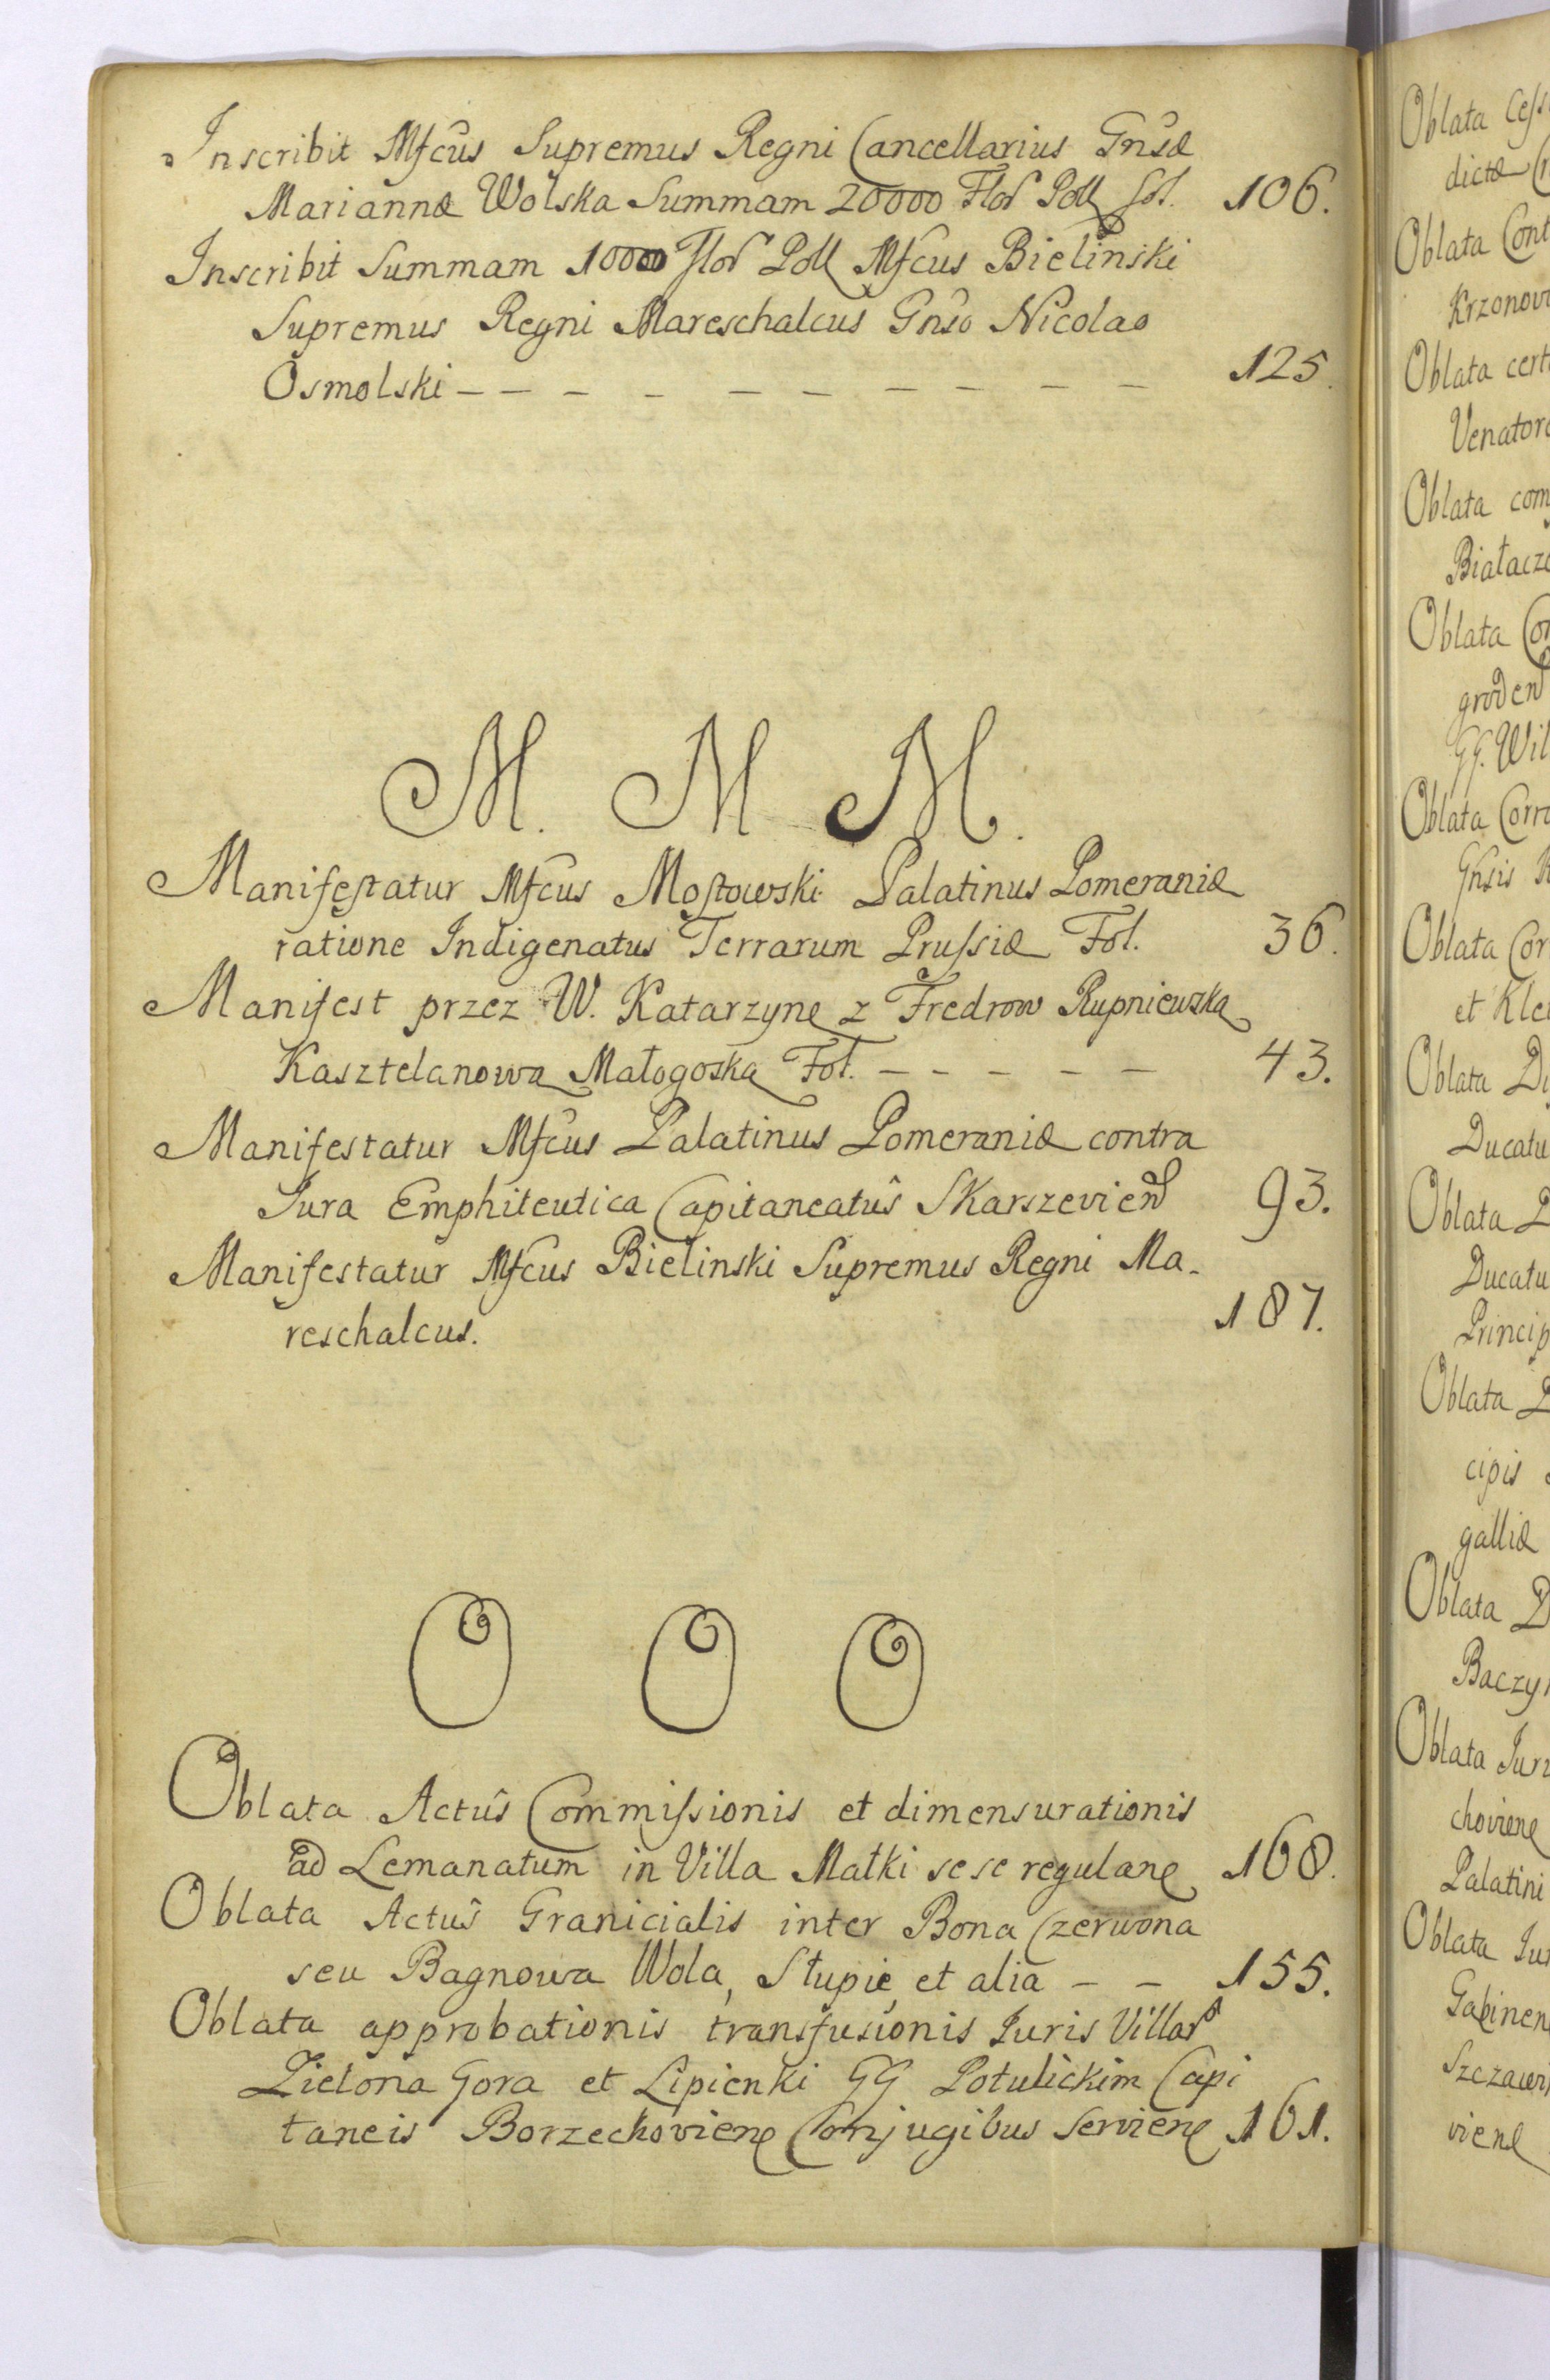 Inscribit Mfcus Supremus Regni Cancellarius Gnsæ
Mariannæ Wolska Summam 20000 Flor Poll fol. 106.
Inscribit Summam 10000 Flor Poll Mfcus Bielinski
Supremus Regni Mareschalcus Gnso Nicolao
Osmolski — — — — — — — — — — 125.
M. M M.
Manifestatur Mfcus Mostowski Palatinus Pomeraniæ
ratione Indigenatus Terrarum Prussiæ Fol. 36.
Manifest przez W. Katarzynę z Fredrow Rupniewską
Kasztelanową Małogoską Fol. — — — — — 43.
Manifestatur Mfcus Palatinus Pomeraniæ contra
Jura Emphiteutica Capitaneatûs Skarszevien 93.
Manifestatur Mfcus Bielinski Supremus Regni Ma-
reschalcus. 187.
O O O
Oblata Actûs Commissionis et dimensurationis
ad Lemanatum in Villa Małki sese regulane 168.
Oblata Actûs Granicialis inter Bona Czerwona
seu Bagnowa Wola, Słupie et alia — — 155.
Oblata approbationis transfusionis Juris Villar
Zielona Gora et Lipienki GG Potulickim Capi
taneis Borzechovien Conjugibus Servien 161.
Oblata
dictæ
Oblata
Oblata
Oblata com
Oblata
groden
GG. Wil
Oblata
Gnsis
Oblata
et
Oblata
Ducatu
Oblata
Ducatu
Princip
Oblata
cipis
galliæ
Oblata
Oblata
Palatini
Oblata